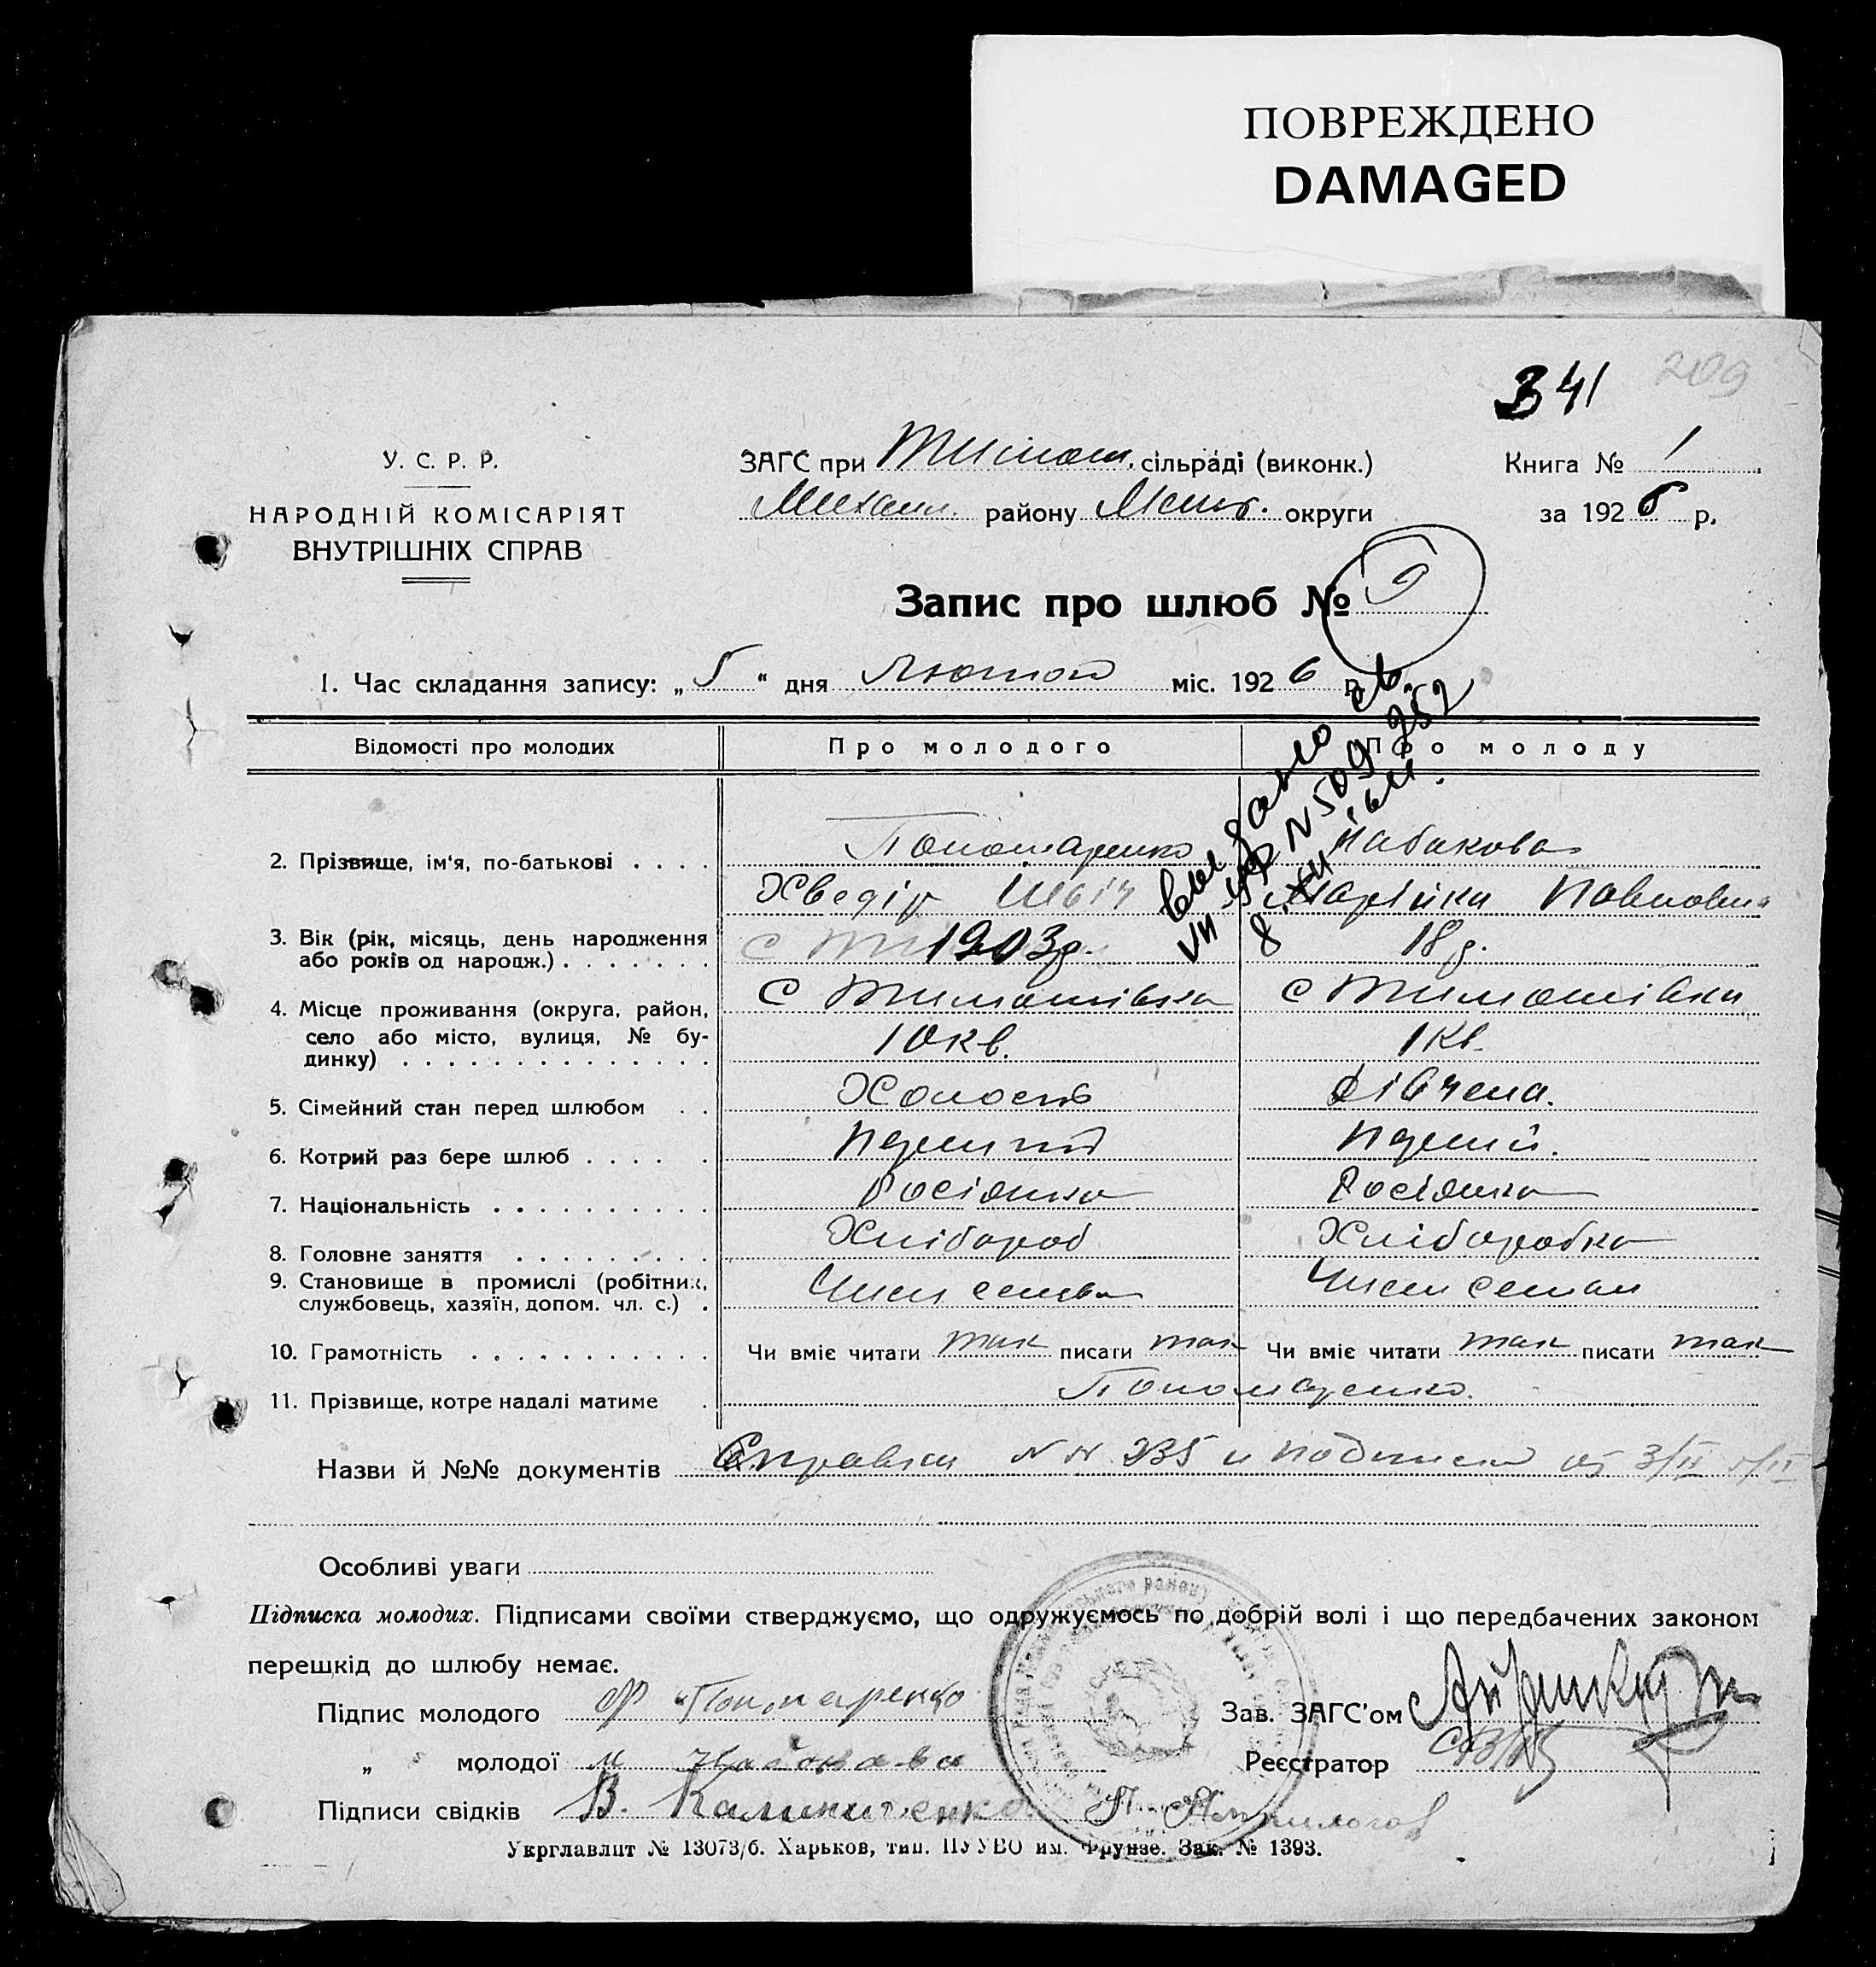 ПОВРЕЖДЕНО
DAMAGED
341 209
У. С. Р. Р.
НАРОДНІЙ КОМІСАРІЯТ
ВНУТРІШНІХ СПРАВ
ЗАГС при Тимош. сільраді (виконк.)
Михайл. району Меліт. округи
Книга № 1
за 1926 р.
Запис про шлюб № 9
1. Час складання запису: „5“ дня Лютой міс. 1926 р.
видано св.
VII УР № 509252
Відомості про молодих
Про молодого
Про молоду
2. Прізвище, ім'я, по-батькові . . . .
Пономаренко
Хведір
Набокова
Марійка Павловна
3. Вік (рік, місяць, день народження
або років од народж.) . . . . . . .
1903р.
18р.
4. Місце проживання (округа, район,
село або місто, вулиця, № бу-
динку) . . . . . . . . . . . . .
с Тимошівка
10кв.
с Тимошівки
1кв.
5. Сімейний стан перед шлюбом . .
Холость
дівчена.
6. Котрий раз бере шлюб . . . . .
Перший
Перший.
7. Національність . . . . . . . . . .
Росіянка
Росіянка
8. Головне заняття . . . . . . . . .
Хлібороб
Хліборобка
9. Становище в промислі (робітник,
службовець, хазяїн, допом. чл. с.) .
Член семьи
Член семьи
10. Грамотність . . . . . . . . . . .
Чи вміє читати так писати так
Чи вміє читати так писати так
11. Прізвище, котре надалі матиме .
Пономаренко.
Назви й №№ документів Справки № № 235 и подписки от 3/II 5/II
Особливі уваги
Підписка молодих. Підписами своїми стверджуємо, що одружуємось по добрій волі і що передбачених законом
перешкід до шлюбу немає.
Підпис молодого Ф Пономаренко
Зав. ЗАГС'ом
„ молодої М Набокова
Реєстратор
Підписи свідків В. Калиниченко П.
Укрглавліт № 13073/б. Харьков, тип. ПУУВО им. Фрунзе. Зак. № 1393.